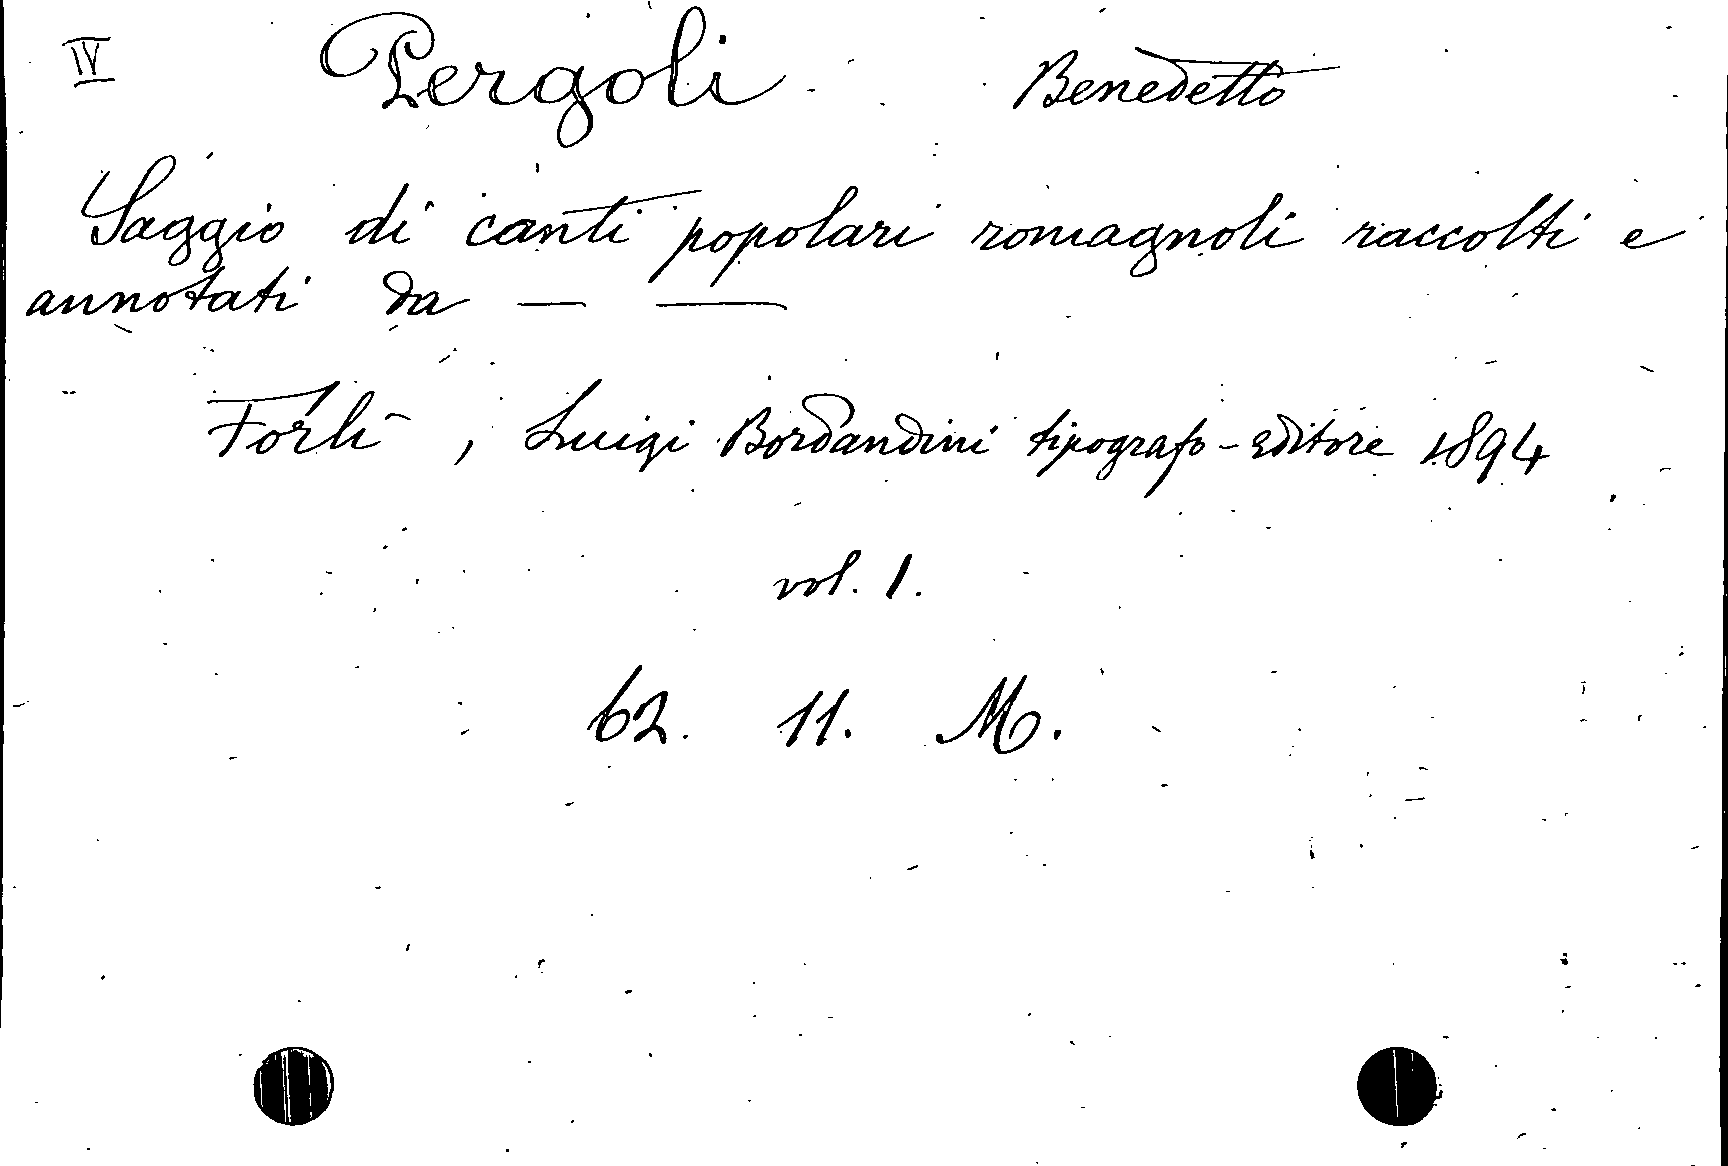 IV Pergoli Benedetto
Saggio di canti popolari romagnoli raccolti e
annotati da — —
Forlì, Luigi Bordandini tipografo-editore 1894
vol. 1.
62. 11. M.